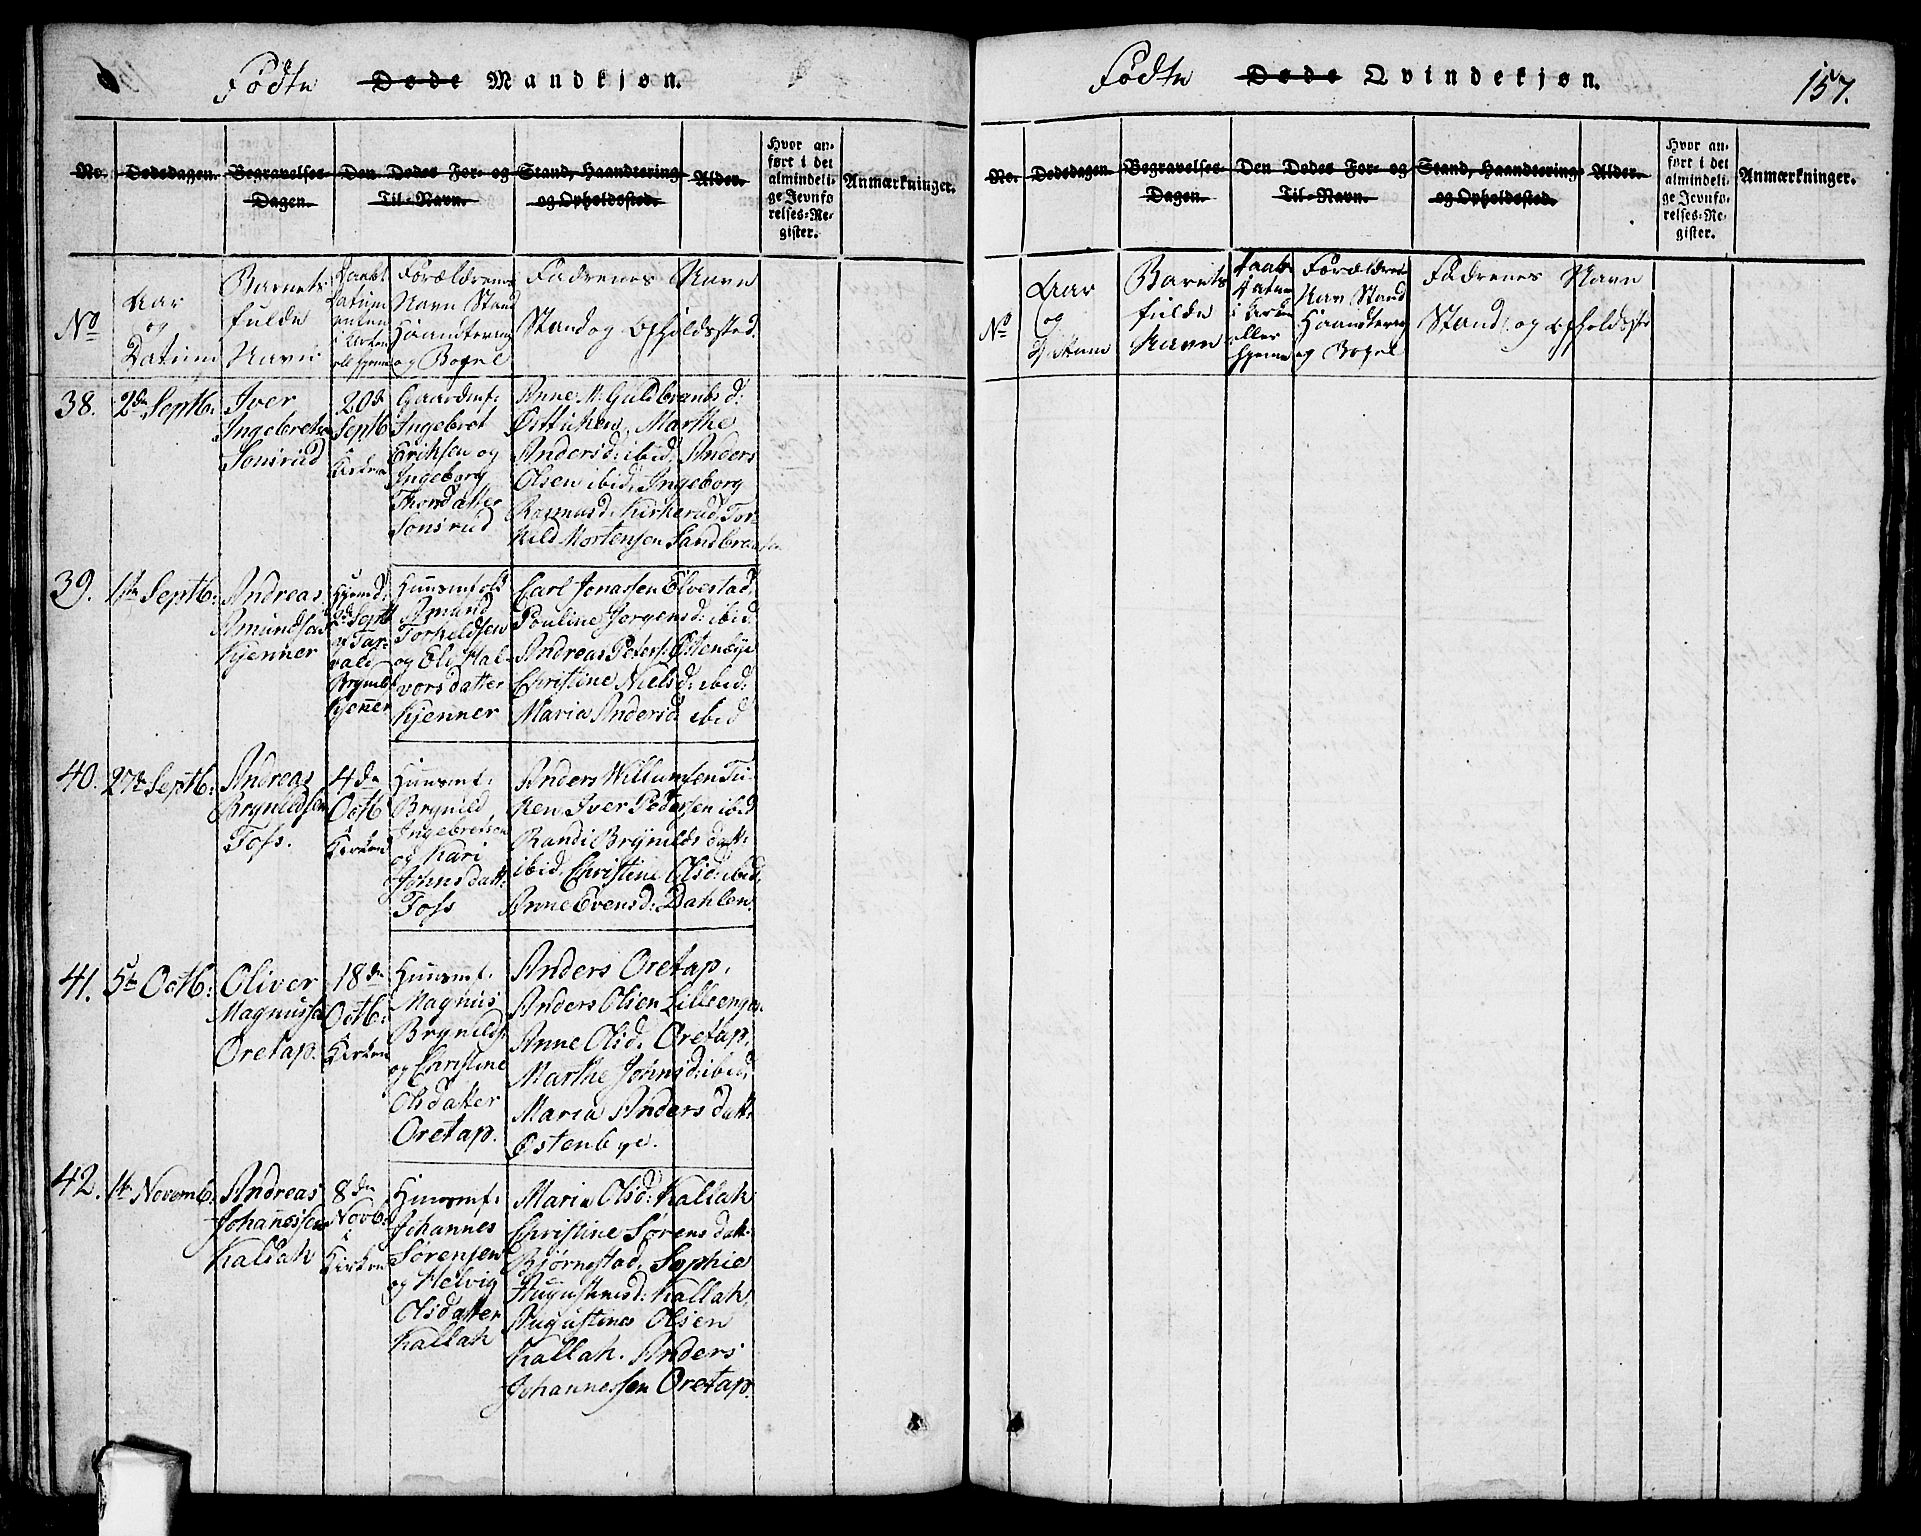 Fødte Døde Mandkjøn.
No.
Dødsdagen.
Begravelses-
Dagen.
Den Dødes For- og
Til-Navn.
Stand, Haandtering
og Opholdssted.
Alder.
Hvor an-
ført i det
almindeli-
ge Jevnfø
relses-Re-
gister.
Anmærkninger.
No
Aar
og
Datum
Barnets
fulde
Navn
Daabs
Datum
enten
i Kirken
ell. hjemme
Forældrenes
Navn Stand
Haandtering
og Bopæl
Faddernes Navn
Stand og Opholdssted.
38.
2den Septb:
Iver
Ingebretsen
Sonsrud
20de
Septb
Kirken
Gaardmf:
Ingebret
Eriksen og
Ingeborg
Thorsdatter
Sonsrud
Anne M. Guldbrands d:
Østtuken, Marthe
Anders d: ibid, Anders
Olsen ibid, Ingeborg
Rasmusd. Kirkerud, Tor-
kild Mortensen Sandbrænden
39.
1ste Septb:
Andreas
Amundsen
Kjenner
Hjemd.
Septb
af Tar-
vald
Brynild
Kjenner
Huusmfolk
Amund
Torkildsen
og Eli Hal-
vorsdatter
Kjenner
Carl Jonassen Elvestad,
Pouline Jørgensd: ibid.
Andreas Peters: Østenbye
Christine Nielsd: ibid:
Maria Andersd: ibid
40.
27de Septb:
Andreas
Brynildsen
Foss.
4de
Octb
Kirken
Huusmf:
Brynild
Ingebretsen
og Kari
Johnsdatt:
Foss
Anders Willumsen Tu-
ken, Iver Pedersen ibid
Randi Brynilds datt:
ibid, Christine Olsd: ibid,
Anne Evensd: Dahlen.
41.
5te Octb:
Oliver
Magnussen
Oretap.
18de
Octb:
Kirken
Huusmf:
Magnus
Brynilds:
og Christine
Olsdatter
Oretap.
Anders Oretap,
Anders Olsen Lilleengen.
Anne Olsd. Oretap,
Marthe Johnsd: ibid,
Maria Anders datt:
Østenbye.
42.
1te Novemb:
Andreas
Johannessen
Kallak
8de
Novb:
Kirken
Huusmf:
Johannes
Sørensen
og Helvig
Olsdatter
Kallak
Maria Olsd: Kallak
Christine Sørens datt:
Bjørnestad, Sophie
Augustinusd: Kallak,
Augustinus Olsen
Kallak. Anders
Johannessen Oretap.
Fødte Døde Qvindekjøn.
157.
No.
Dødsdagen.
Begravelses-
Dagen.
Den Dødes For- og
Til-Navn.
Stand, Haandtering
og Opholdssted.
Alder.
Hvor an-
ført i det
almindeli-
ge Jevnfø-
relses-Re-
gister.
Anmærkninger.
No
Aar
og
Datum
Barnets
fulde
Navn
Daabs
Datum
i Kirken
eller
hjemme
Forældres
Navn Stand
Haandtering
og Bopæl
Faddrenes Navn
Stand og Opholdssted